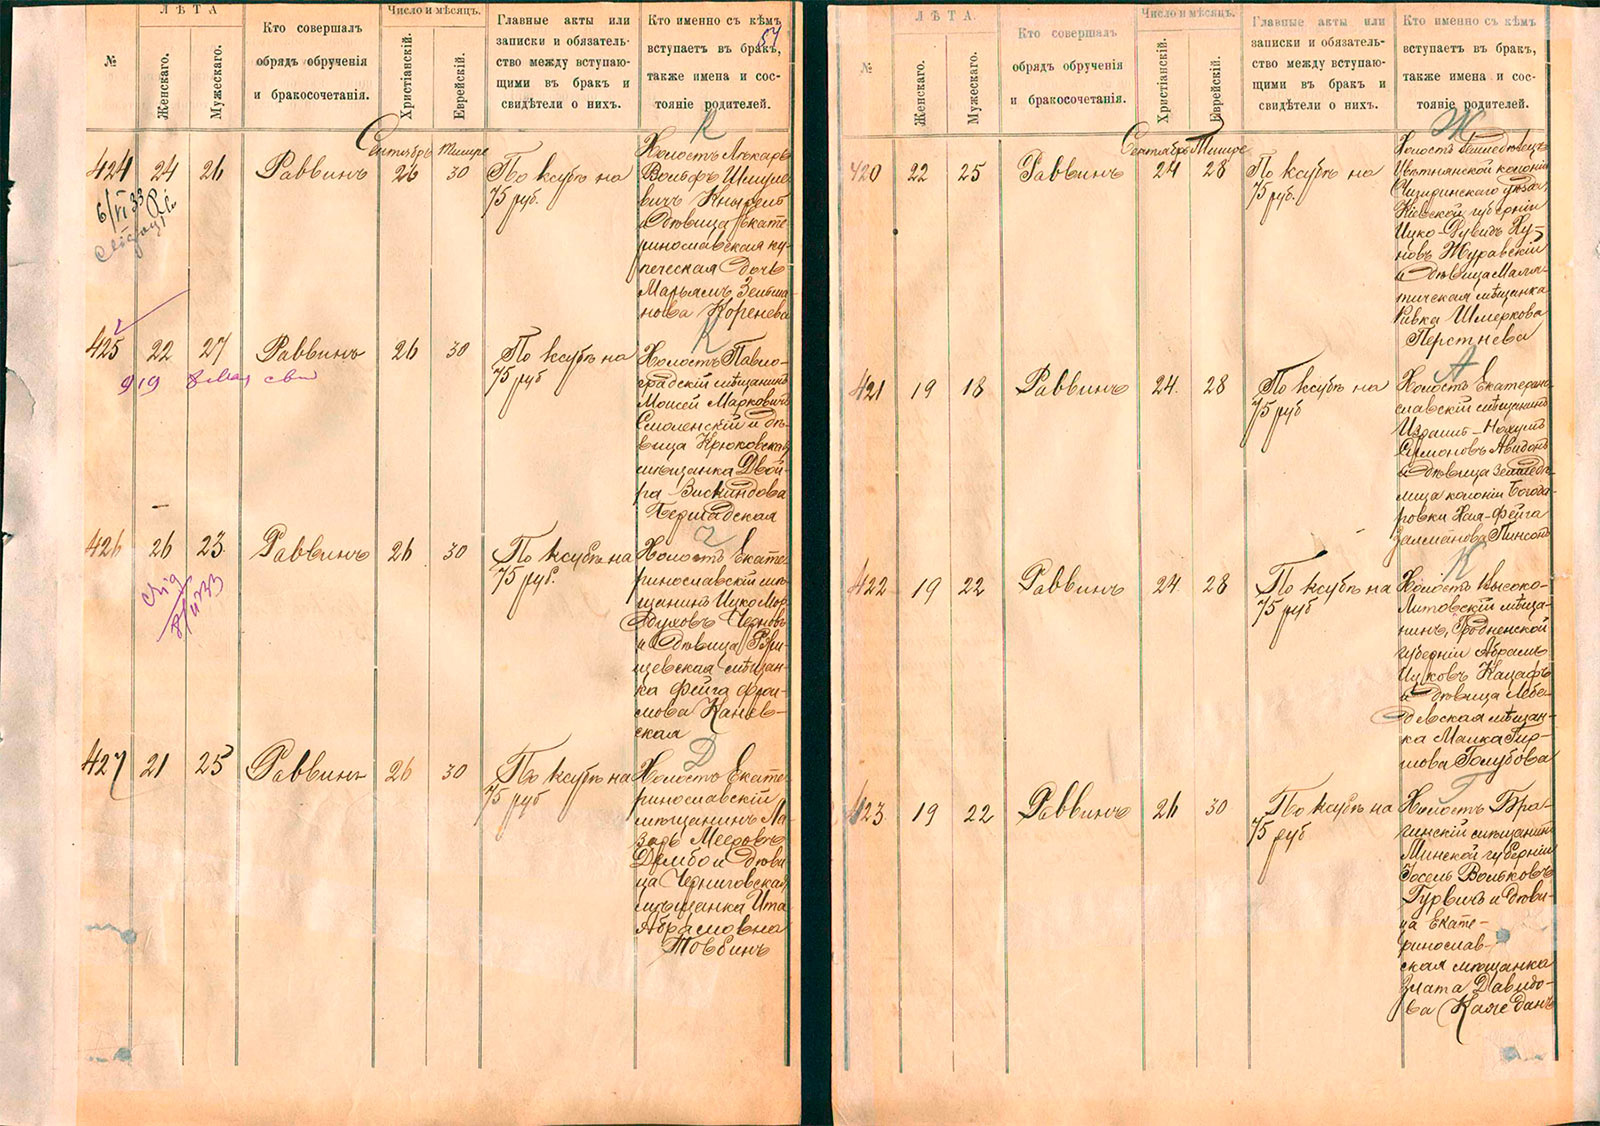 ЛѢТА
№
Женскаго.
Мужескаго.
Кто совершалъ
обрядъ обрученія
и бракосочетанія.
Число и мѣсяцъ.
Христіанскій.
Еврейскій.
Главные акты или
записки и обязатель-
ство между вступаю-
щими въ бракъ и
свидѣтели о нихъ.
Кто именно съ кѣмъ
вступаетъ въ бракъ,
также имена и сос-
тояніе родителей.
57
Сентябрь Тишре
К
424 24 26 Раввинъ 26 30 По ксубѣ на
75 руб.
Холостъ Лѣкарь
Вольфъ Шмуле-
вичъ
и дѣвица Екате-
ринославская ку-
печеская дочь
Марьямъ
нова Коренева
6/VI 33
К
425 22 27 Раввинъ 26 30 По ксубѣ на
75 руб
Холостъ Павло-
градскій мѣщанинъ
Моисей Марковичъ
Смоленскій и дѣ-
вица Крюковская
мѣщанка Двой-
ра
Бершадская
919
Ч
426 26 23 Раввинъ 26 30 По ксубѣ на
75 руб.
Холостъ Екате-
ринославскій мѣ-
щанинъ Ицко Мор-
духовъ Черновъ
и дѣвица
щевская мѣщан-
ка Фейга Фрои-
мова Канев-
ская
Д
427 21 25 Раввинъ 26 30 По ксубѣ на
75 руб
Холостъ Екате-
ринославскій
мѣщанинъ Ла-
зарь Мееровъ
Дембо и дѣви-
ца Черниговская
мѣщанка Ита
Абрамовна
Товбинъ
ЛѢТА.
№
Женскаго.
Мужескаго.
Кто совершалъ
обрядъ обрученія
и бракосочетанія.
Число и мѣсяцъ.
Христіанскій.
Еврейскій.
Главные акты или
записки и обязатель-
ство между вступаю-
щими въ бракъ и
свидѣтели о нихъ.
Кто именно съ кѣмъ
вступаетъ въ бракъ,
также имена и сос-
тояніе родителей.
Сентябрь Тишре
Ж
420 22 25 Раввинъ 24 28 По ксубѣ на
75 руб.
Холостъ Земледѣлецъ
колоніи
Чигиринскаго уѣзда
Кіевской губерніи
Ицко-Дувидъ Ну-
новъ Журавскій
и дѣвица
тическая мѣщанка
Ривка Шмеркова
Перстнева
А
421 19 18 Раввинъ 24. 28 По ксубѣ на
75 руб
Холостъ Екатерино-
славскій мѣщанинъ
Израиль-Нохумъ
и дѣвица Земледѣ-
лица колоніи Богода-
ровки Хая-Фейга
Залманова Пинсонъ
К
422 19 22 Раввинъ 24 28 По ксубѣ на
75 руб
Холостъ Высоко-
Литовскій мѣща-
нинъ, Гродненской
губерніи Абрамъ
Ицковъ Кацафъ
и дѣвица Лебе-
девская мѣщан-
ка Малка Гир-
шова Голубова
Г
423 19 22 Раввинъ 26 30 По ксубѣ на
75 руб
Холостъ Бра-
гинскій мѣщанинъ
Минской губерніи
Іосель Вольковъ
Гурвичъ и дѣви-
ца Екате-
ринослав-
ская мѣщанка
Злата Давидо-
ва